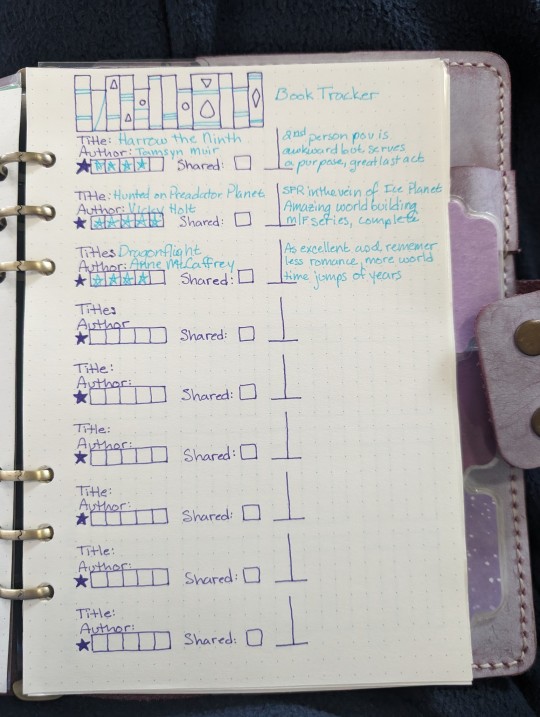 Book Tracker
Title: Harrow the Ninth
Author: Tamsyn Muir
Shared:
2nd person pov is
awkward but serves
a purpose, great last act
Title: Hunted on Preadator Planet
Author: Vicky Holt
Shared:
SFR in the vein of Ice Planet
Amazing world building
M/F series, complete
Title: Dragonflight
Author: Anne McCaffrey
Shared:
As excellent and, rememer
less romance, more world
time jumps of years
Title:
Author
Shared:
Title:
Author:
Shared:
Title:
Author:
Shared:
Title:
Author:
Shared:
Title:
Author:
Shared:
Title:
Author:
Shared: